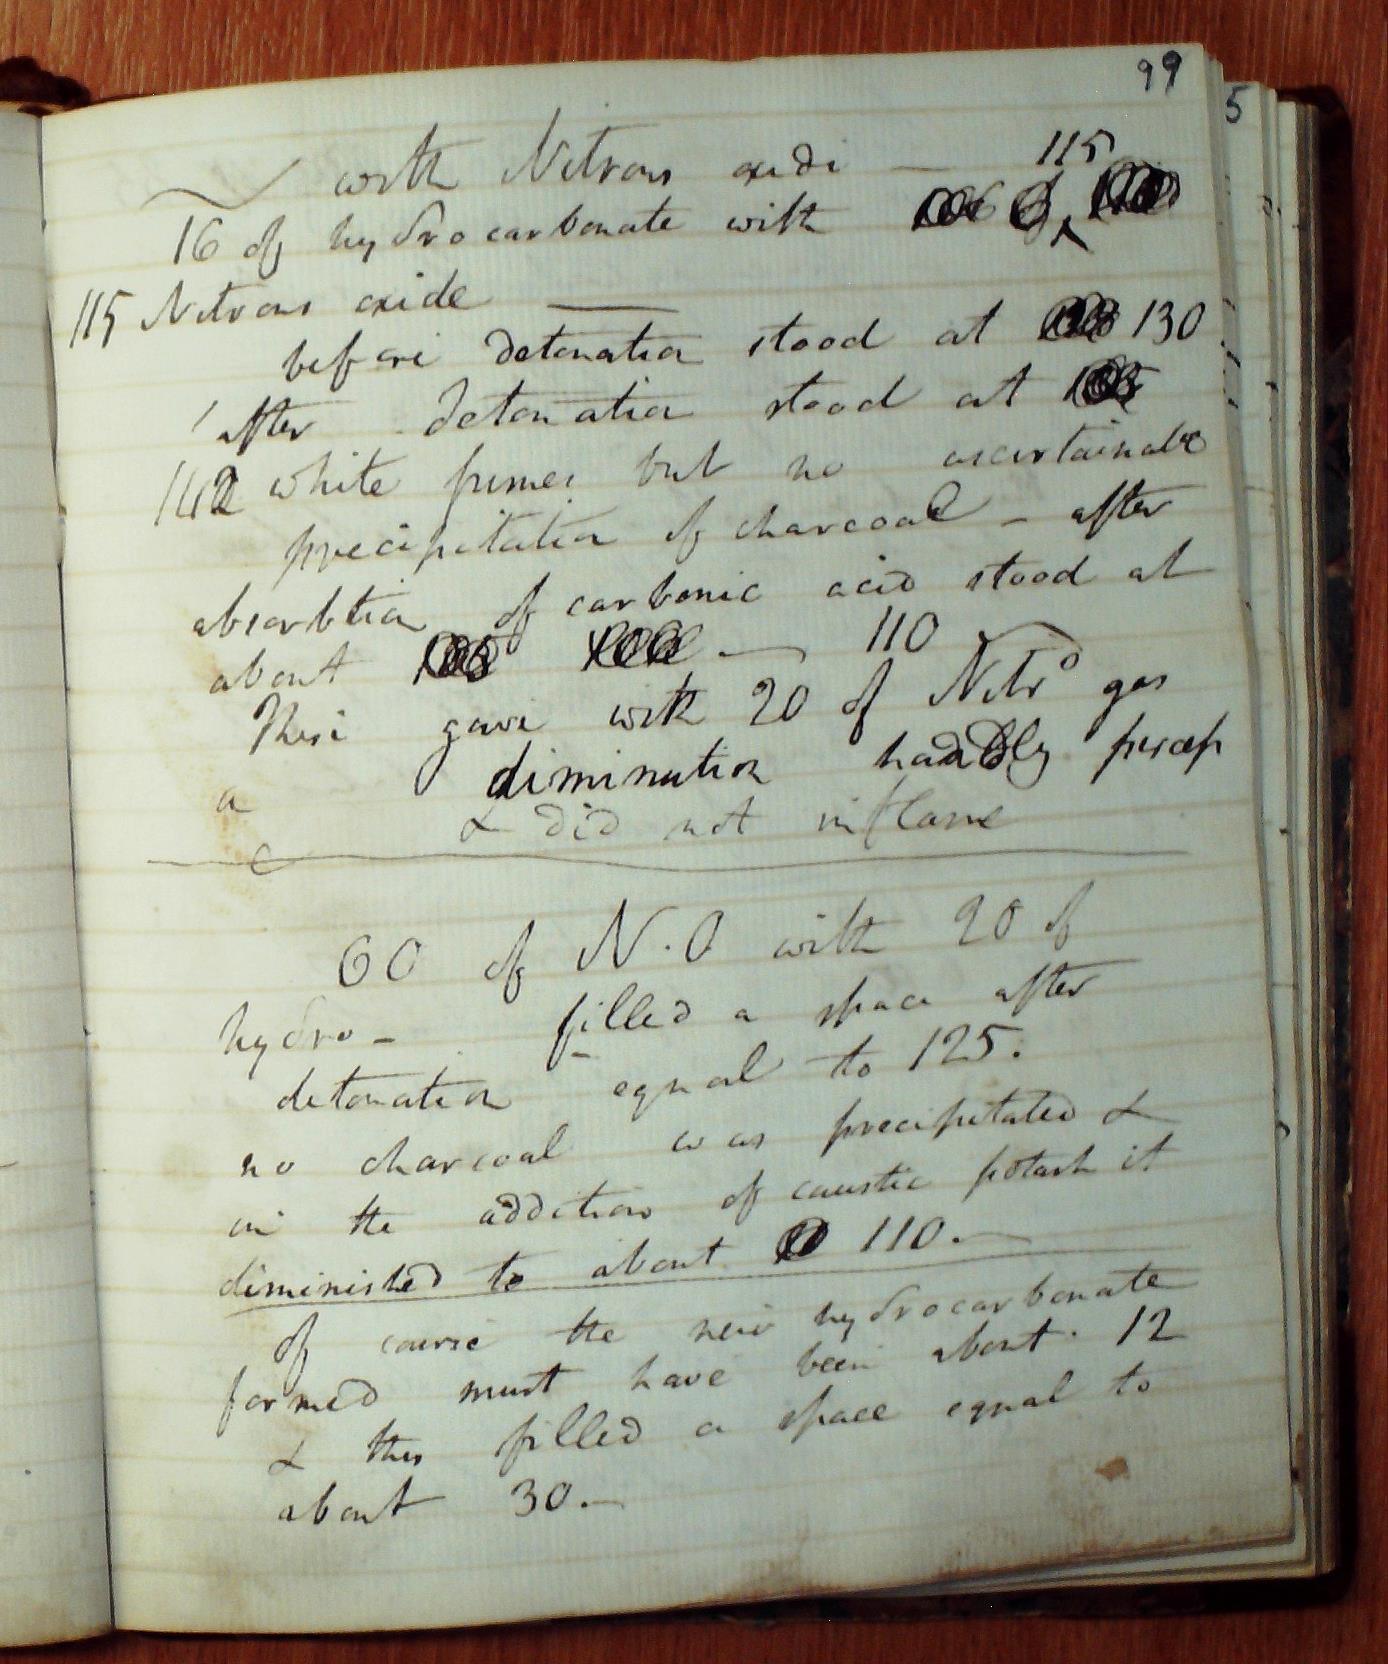 99
with Nitrous oxide — 115
16 of hydrocarbonate with
115 Nitrous oxide —
before detonation stood at 130
after detonation stood at
112 white fumes but no ascertainable
precipitation of charcoal – after
absorbtion of carbonic acid stood at
about — 110
These gave with 20 of Nitrs gas
a diminution hardly percep
& did not inflame
60 of N.O with 20 of
hydro – filled a space after
detonation equal to 125.
no charcoal was precipitated &
on the addition of caustic potash it
diminished to about 110. —
Of course the new hydrocarbonate
formed must have been about 12
& this filled a space equal to
about 30. —
5